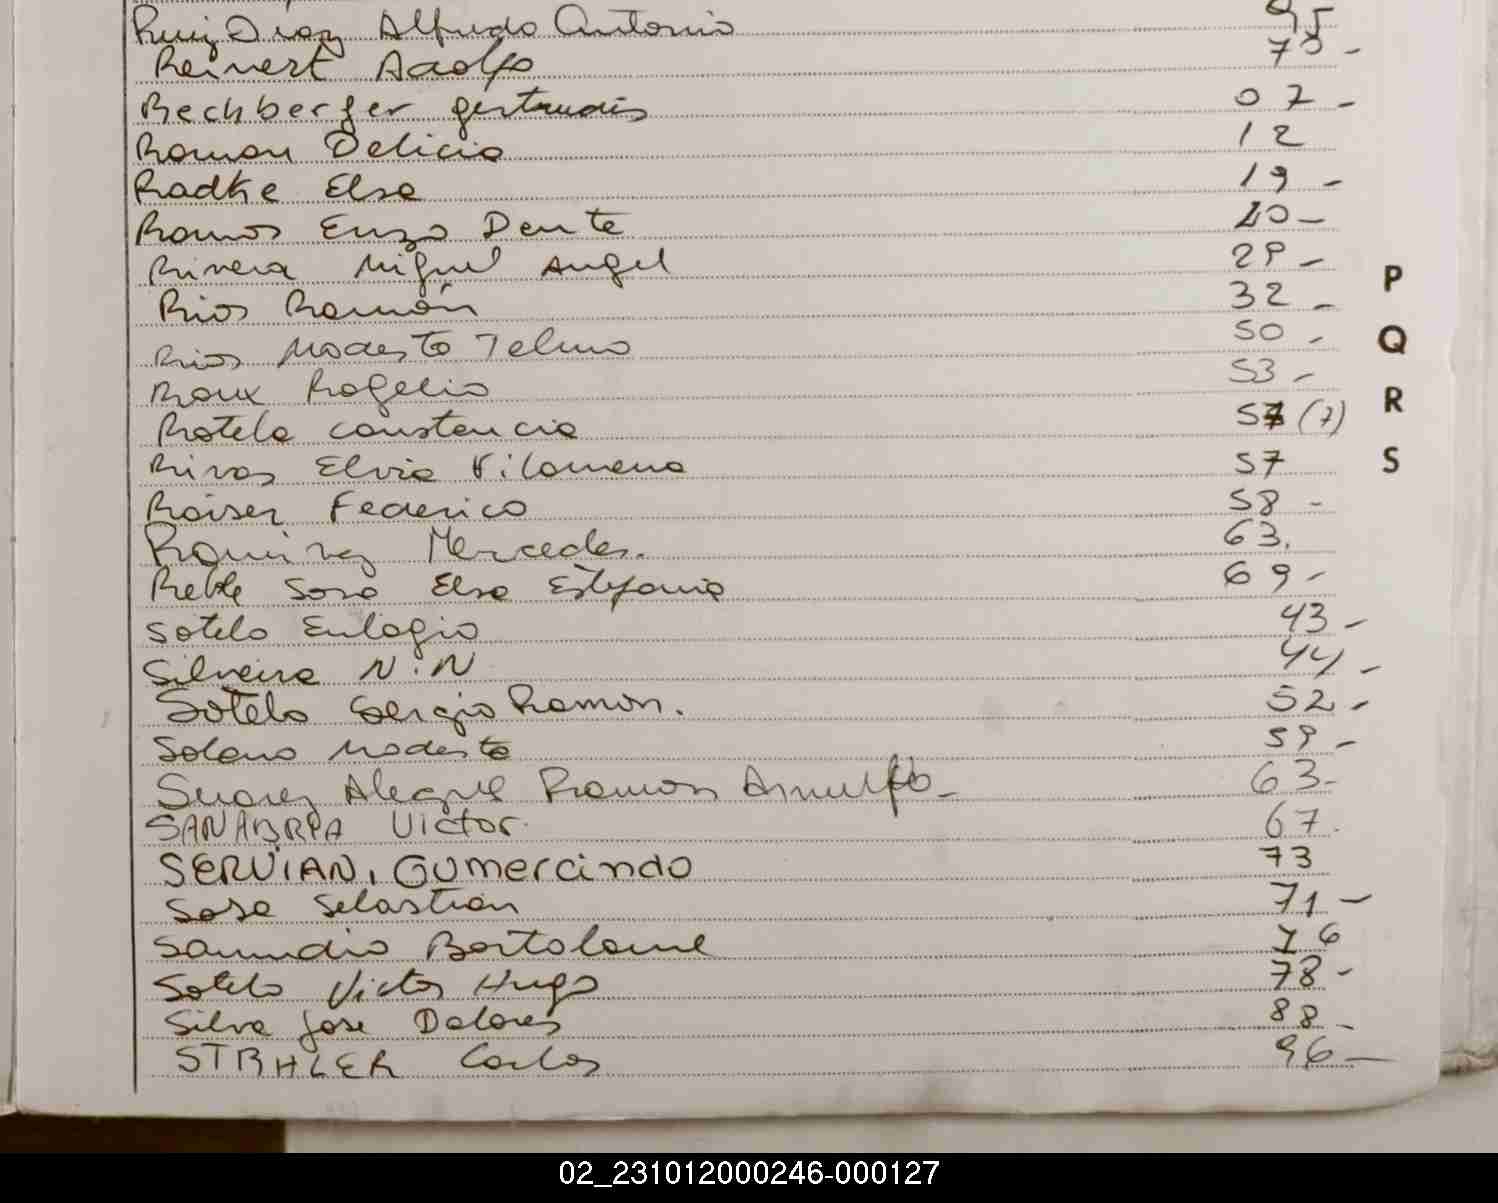 Ruiz Diaz Alfredo Antonio 95
Reinert Adolfo 75 -
Rechberger gertrudis 07 -
Roman Delicia 12
Radtke Elsa 19 -
Ramos Enzo Dente 20 -
Rivera Miguel Angel 29 -
Rios Ramón 32 -
Rios Modesto Telmo 50 -
Roux Rogelio 53 -
Rotela constancia 57 (7)
Rivas Elvia Filomena 57
Roiser Federico 58 -
Ramirez Mercedes. 63.
Sosa Elsa Estefania 69 -
Sotelo Eulogio 43 -
Silveira N.N 44 -
Sotelo Sergio Ramon. 52 -
Solano Modesto 59 -
Suarez Alegre Ramon Arnulfo - 63 -
SANABRIA Victor. 67.
SERVIAN, GUmercindo 73
Sosa Sebastián 71 -
Samudio Bartolome 76
Sotelo Victor Hugo 78 -
Silva Jose Dolores 88 -
STRHLER Carlos 96 -
P
Q
R
S
02_231012000246-000127